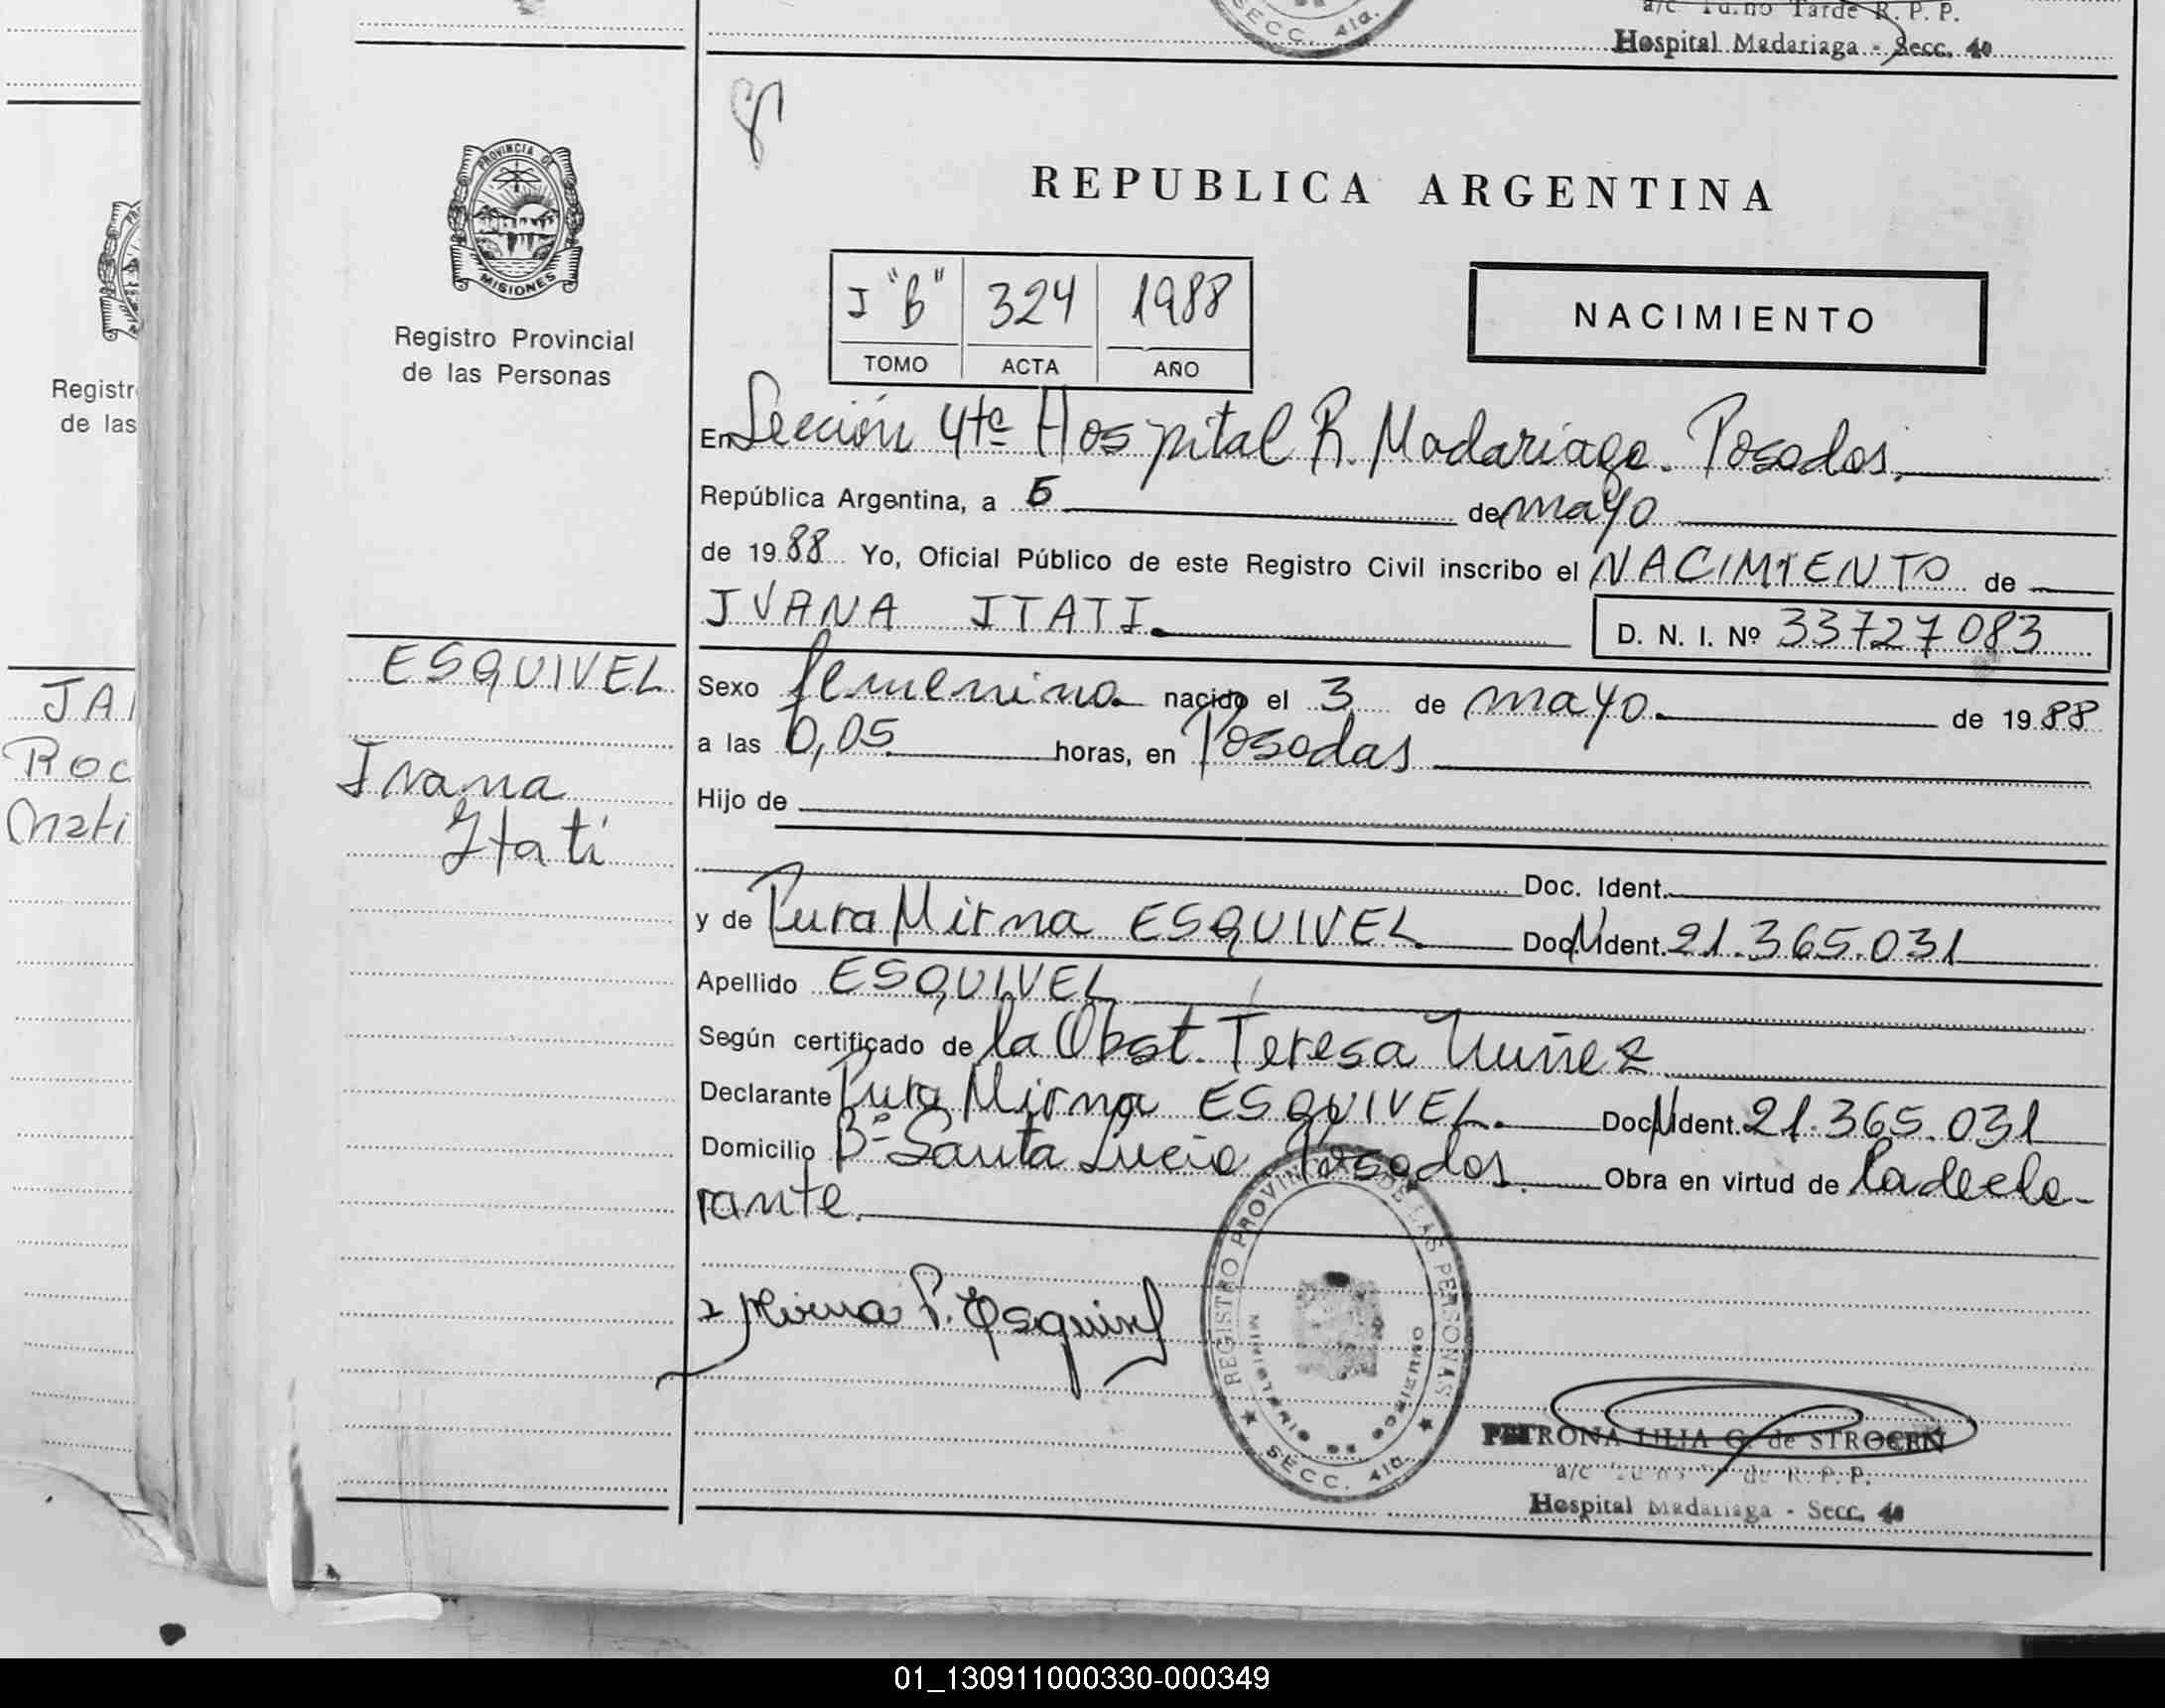 SECC. 4ta.
a/c Turno Tarde R. P. P.
Hospital Madariaga - Secc. 4a
PROVINCIA DE
MISIONES
Registro Provincial
de las Personas
REPUBLICA ARGENTINA
I "B" 324 1988
TOMO ACTA AÑO
NACIMIENTO
En Sección 4ta Hospital R. Madariaga. Posadas.
República Argentina, a 5 de mayo
de 1988 Yo, Oficial Público de este Registro Civil inscribo el NACIMIENTO de
IVANA ITATI.
D. N. I. Nº 33727083
Sexo femenino nacido el 3 de mayo. de 1988
a las 0,05 horas, en Posadas
Hijo de
Doc. Ident.
y de Pura Mirna ESQUIVEL. Doc. Ident. 21.365.031
Apellido ESQUIVEL
Según certificado de la Obst. Teresa Nuñez
Declarante Pura Mirna ESQUIVEL. Doc. Ident. 21.365.031
Domicilio Bº Santa Lucia Posadas. Obra en virtud de la decla-
rante.
Mirna P. Esquivel
REGISTRO PROVINCIAL DE LAS PERSONAS
MINISTERIO DE GOBIERNO
SECC. 4ta.
PETRONA LILIA G. de STROCEN
a/c R. P. P.
Hospital Madariaga - Secc. 4a
ESQUIVEL
Ivana
Itati
Registr
de las
JAI
Roc
Mati
01_130911000330-000349